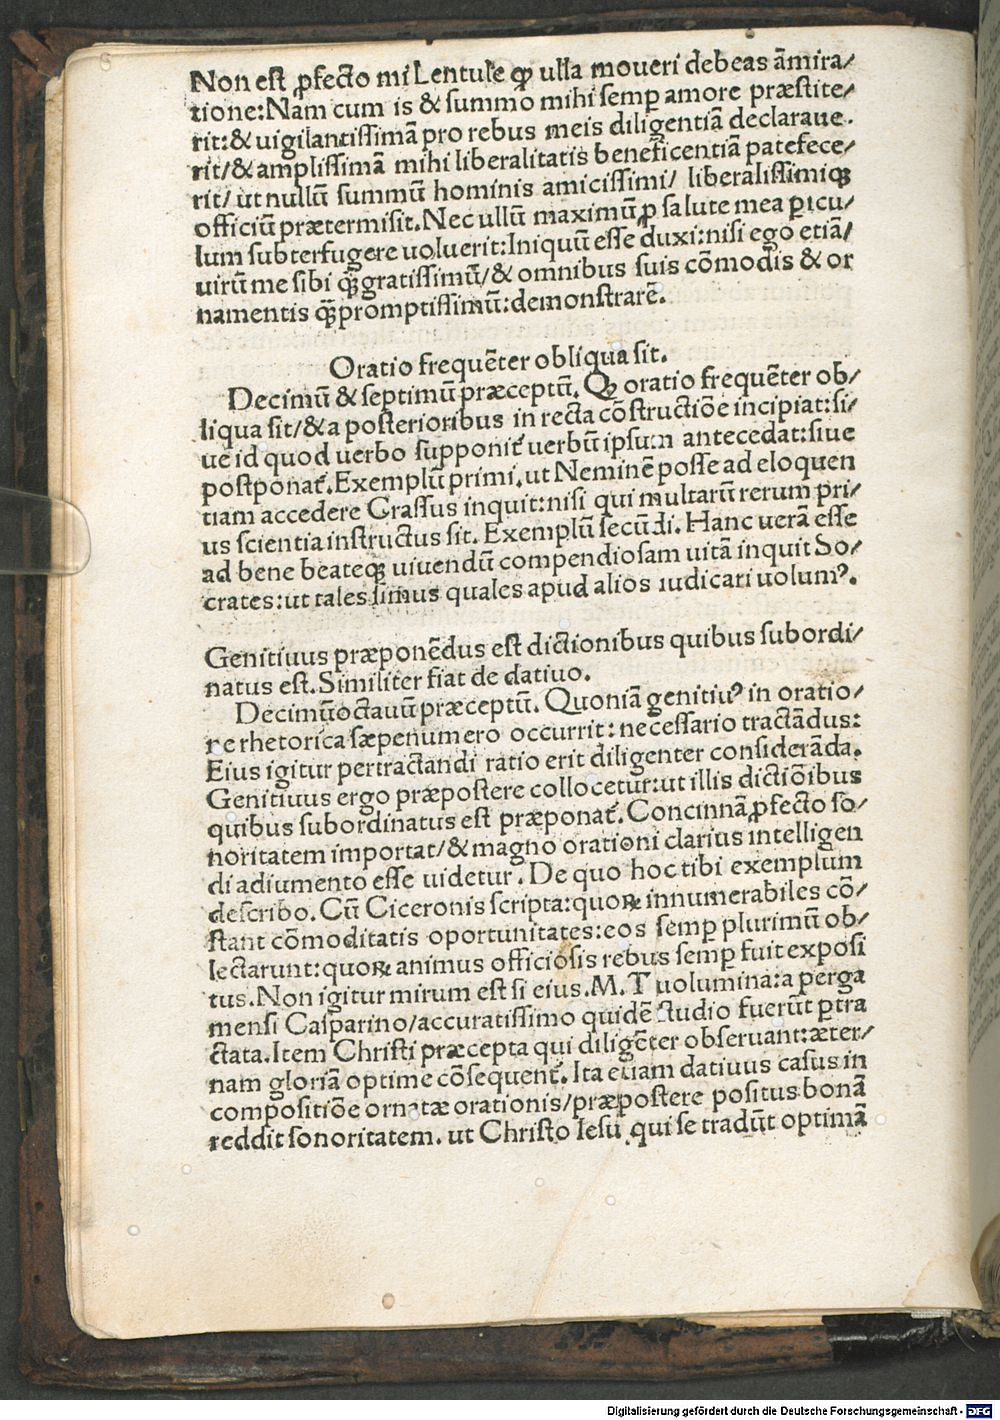 Non est ꝓfecto mi Lentule ꝙ ulla moueri debeas āmira/
tione:Nam cum is & summo mihi semꝑ amore præstite/
rit:& uigilantissimā pro rebus meis diligentiā declaraue.
rit/& amplissimā mihi liberalitatis beneficentiā patefece/
rit/ ut nullū summū hominis amicissimi/ liberalissimiqꝫ
officiū prætermisit.Nec ullū maximū ꝓ salute mea ꝑicu/
lum subterfugere uoluerit:Iniquū esse duxi:nisi ego etiā/
uirū me sibi q̄ꝫgratissimū/& omnibus suis cōmodis & or
namentis q̄ꝫpromptissimū:demonstrarē.
Oratio frequēter obliqua sit.
Decimū & septimū præceptū. Ꝙ oratio frequēter ob/
liqua sit/&a posterioribus in recta cōstructiōe incipiat:si/
ue id quod uerbo supponit᷑ uerbū ipsum antecedat:siue
postponat᷑.Exemplū primi.ut Neminē posse ad eloquen
tiam accedere Crassus inquit:nisi qui multarū rerum pri/
us scientia instructus sit. Exemplū secūdi. Hanc uerā esse
ad bene beateqꝫ uiuendū compendiosam uitā inquit So/
crates:ut tales simus quales apud alios iudicari uolumꝰ.
Genitiuus præponēdus est dictionibus quibus subordi/
natus est.Similiter fiat de datiuo.
Decimūoctauū præceptū. Quoniā genitiuꝰ in oratio/
re rhetorica sæpenumero occurrit: necessario tractādus:
Eius igitur pertractandi ratio erit diligenter considerāda.
Genitiuus ergo præpostere collocetur:ut illis dictiōibus
quibus subordinatus est præponat᷑.Concinnā ꝓfecto so/
noritatem importat/& magno orationi clarius intelligen
di adiumento esse uidetur. De quo hoc tibi exemplum
describo. Cū Ciceronis scripta:quoꝝ innumerabiles cō/
stant cōmoditatis oportunitates:eos semꝑ plurimū ob/
lectarunt:quoꝝ animus officiosis rebus semꝑ fuit exposi
tus.Non igitur mirum est si eius.M.T uolumina:a perga
mensi Casparino/accuratissimo quidē studio fuerūt ꝑtra
ctata.Item Christi præcepta qui diligēter obseruant:æter/
nam gloriā optime cōsequent᷑.Ita etiam datiuus casus in
compositiōe ornatæ orationis/præpostere positus bonā
reddit sonoritatem. ut Christo Iesu qui se tradūt optimā
Digitalisierung gefördert durch die Deutsche Forschungsgemeinschaft - DFG